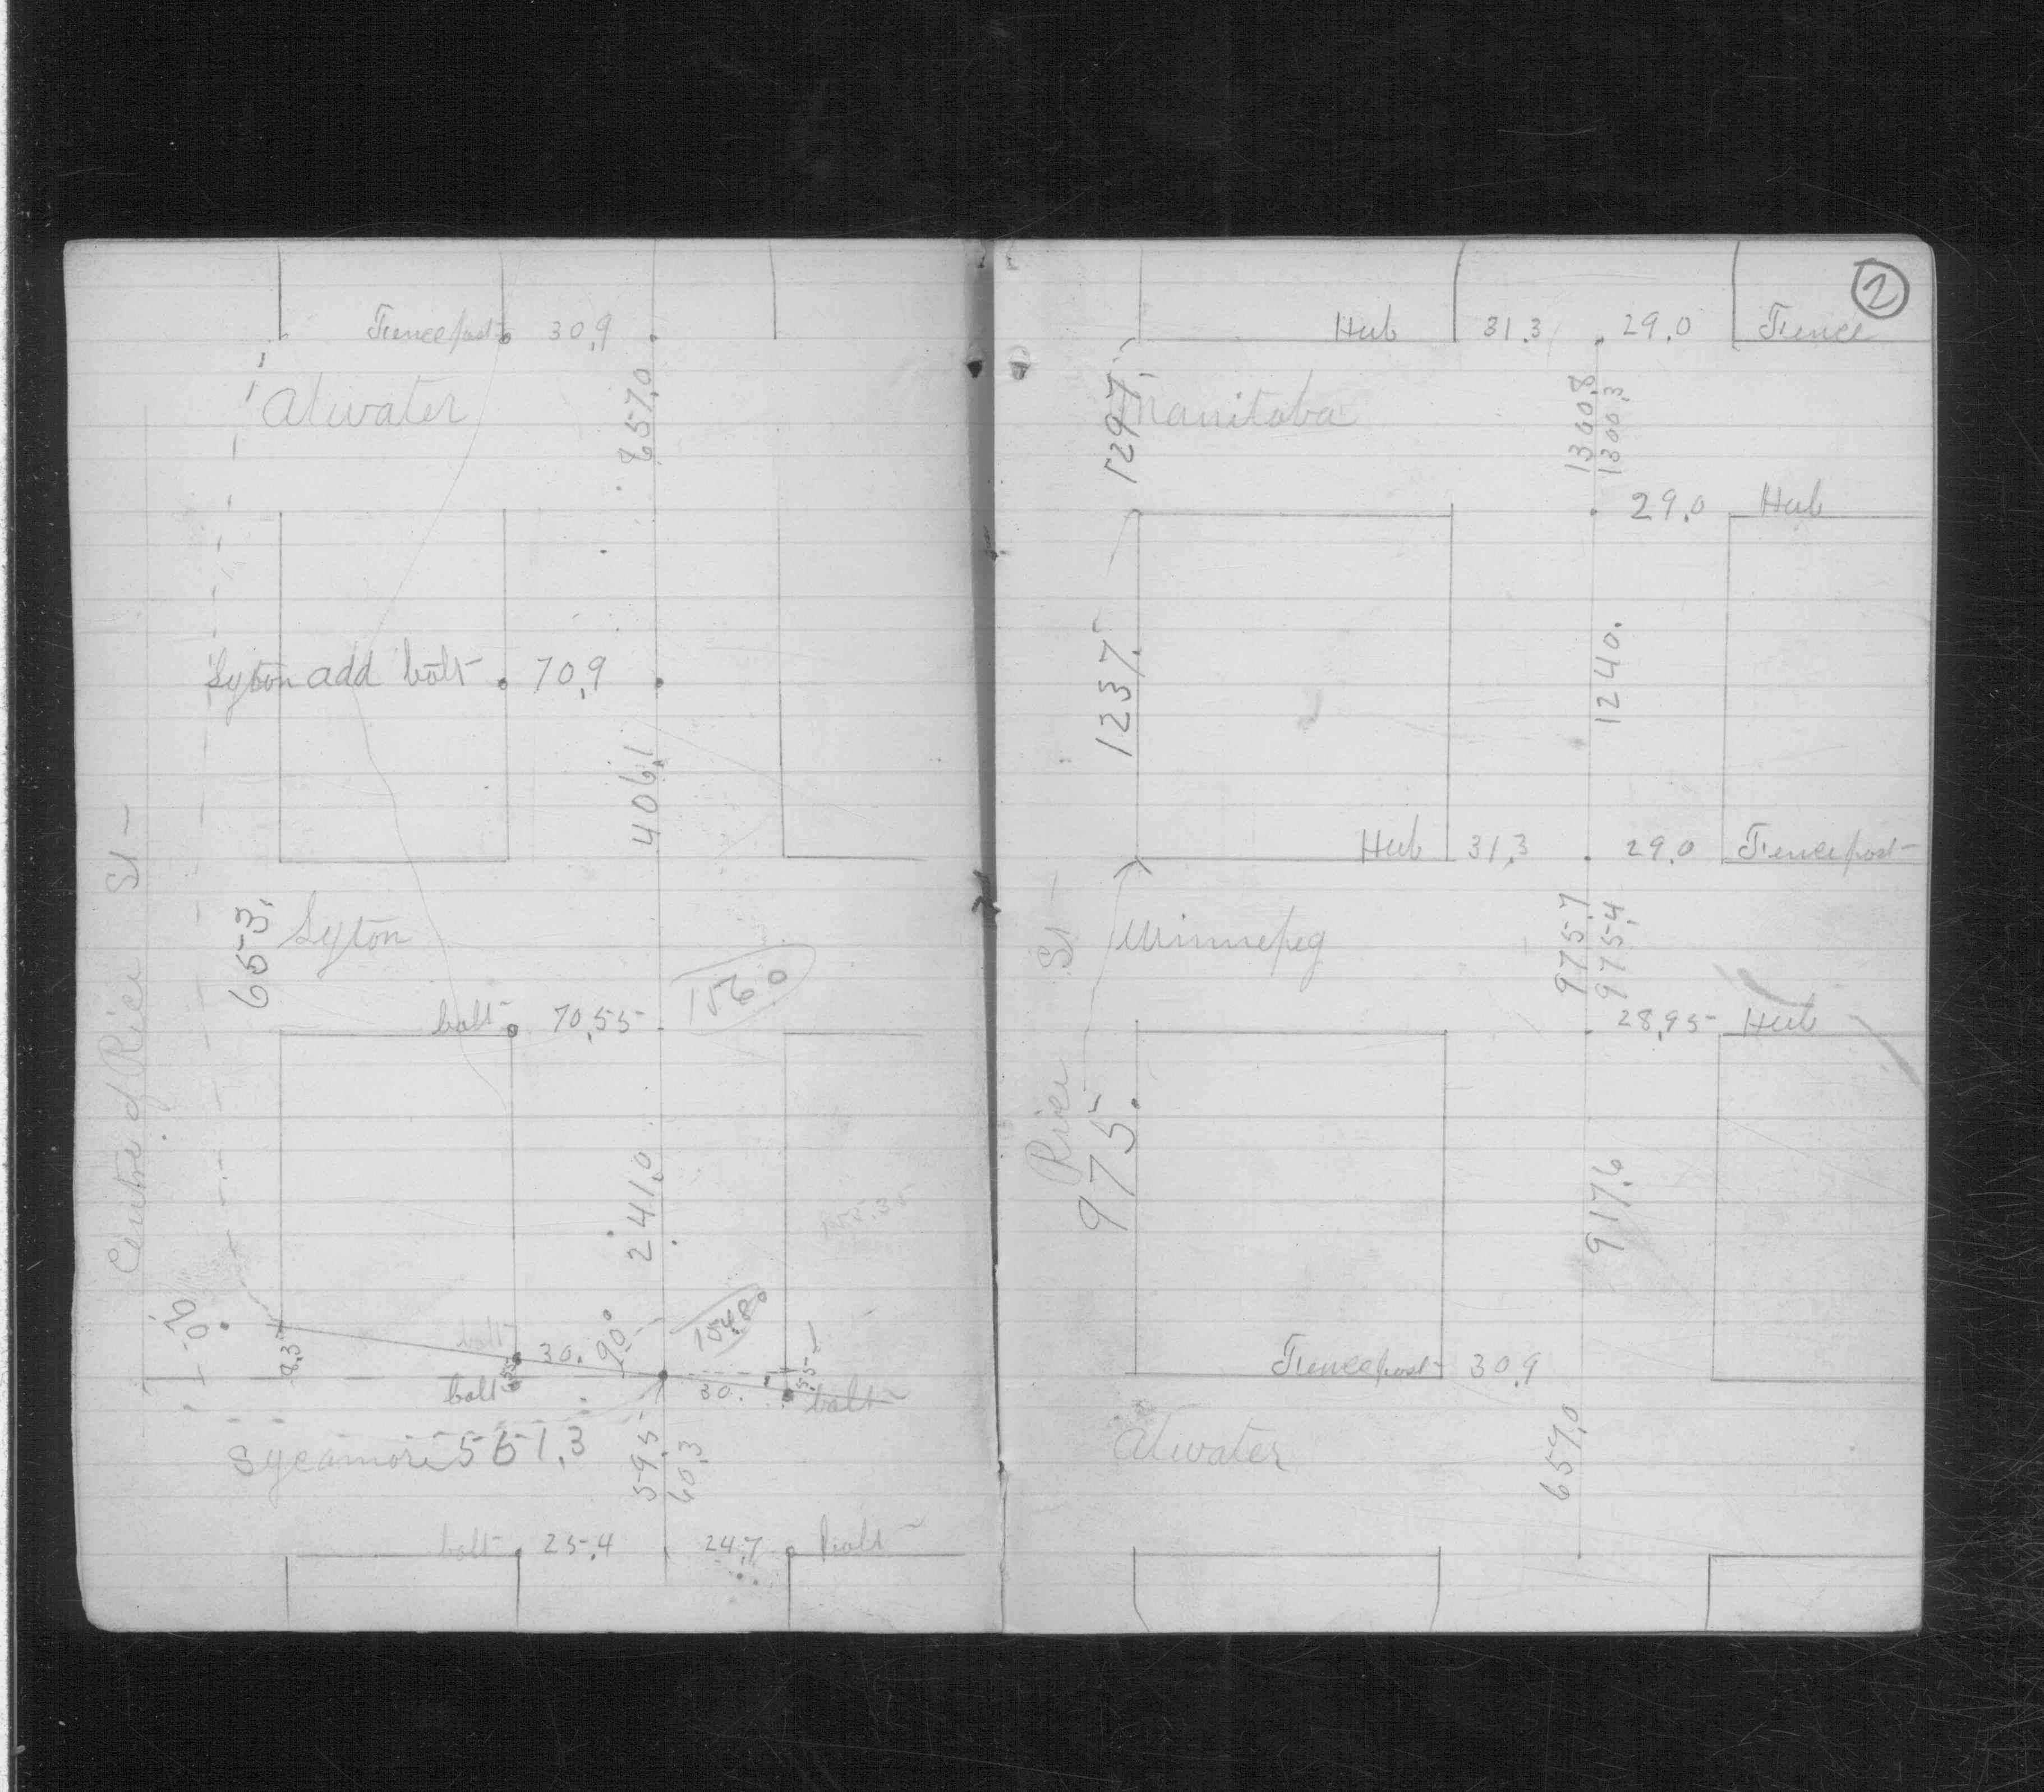 Fencepost 30.9
Atwater
657.0
Lyton add bolt 70.9
406.1
Centre of Rice St
653.
Lyton
156.0
bolt 70.55
241.0
154.80
90°
bolt
30.
8.3
bolt
30.
5.5
bolt
Sycamore 551.3
59.5
60.3
bolt 25.4
24.7 bolt
2
Hub 31.3 29.0 Fence
1297.
Manitoba
1300.8
1300.3
29.0 Hub
1237.
1240.
Hub 31.3 29.0 Fencepost
Rice St
Winnepeg
975.7
975.4
28.95 Hub
975.
917.6
Fencepost 30.9
Atwater
659.0
bolt